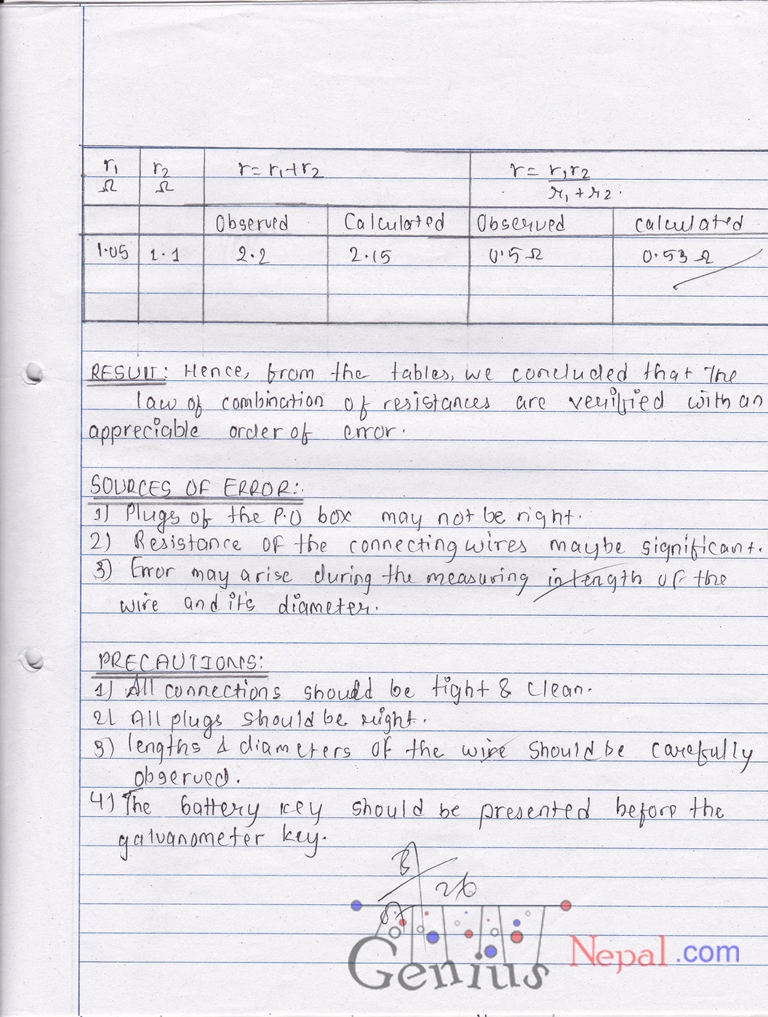 r1 Ω r2 Ω r = r1+r2 r = r1r2 / r1+r2.
Observed Calculated Observed calculated
1.05 1.1 2.2 2.15 0.5 Ω 0.53 Ω
RESULT: Hence, from the tables, we concluded that The
law of combination of resistances are verified with an
appreciable order of error.
SOURCES OF ERROR:
1) Plugs of the P.O box may not be right.
2) Resistance of the connecting wires maybe significant.
3) Error may arise during the measuring in length of the
wire and it's diameter.
PRECAUTIONS:
1) All connections should be tight & clean.
2) All plugs should be right.
3) lengths & diameters of the wire should be carefully
observed.
4) The battery key should be presented before the
galvanometer key.
Genius Nepal.com